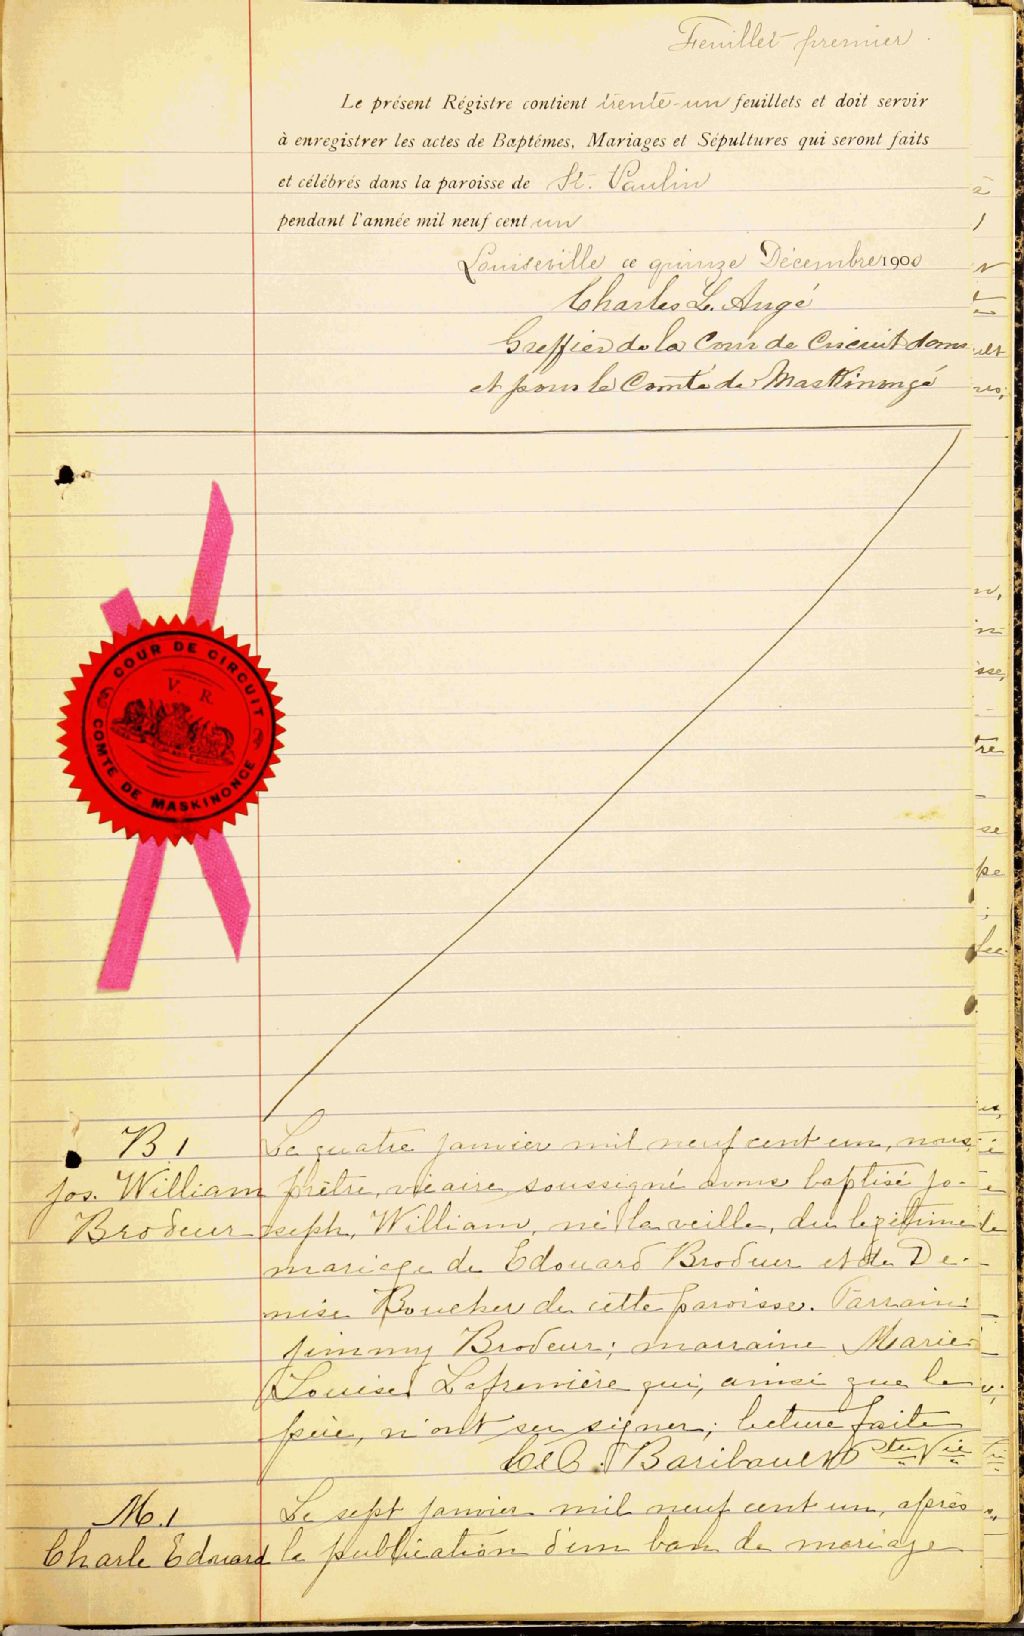 Feuillet premier.
Le présent Régistre contient trente-un feuillets et doit servir
à enregistrer les actes de Baptêmes, Mariages et Sépultures qui seront faits
et célébrés dans la paroisse de St. Paulin
pendant l'année mil neuf cent un
Louiseville ce quinze Décembre 1900
Charles L. Angé
Greffier de la Cour de Circuit dans
et pour le Comté de Maskinongé
COUR DE CIRCUIT
V. R.
COMTE DE MASKINONGE
B 1
Jos. William
Brodeur
Le quatre janvier mil neuf cent un, nous
prêtre, vicaire soussigné avons baptisé Jo-
seph, William, né la veille, du légitime
mariage de Edouard Brodeur et de De-
mise Boucher de cette paroisse. Parrain
Jimmy Brodeur; marraine Marie
Louise Lafrenière qui, ainsi que le
père, n'ont su signer; lecture faite
Baribault Ptre Vic
M. 1
Charle Edouard
Le sept janvier mil neuf cent un, après
la publication d'un ban de mariage